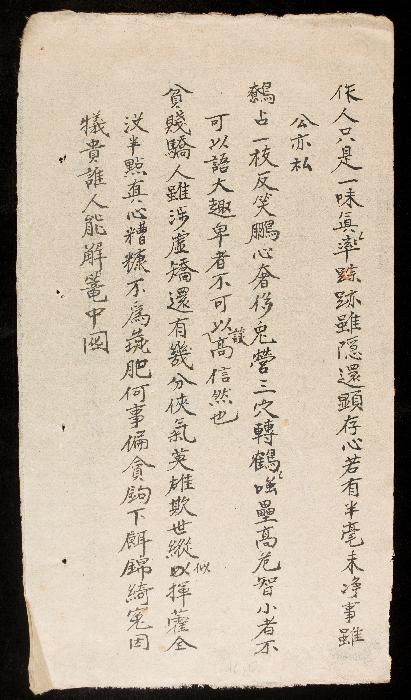 作人只是一味真率踪跡雖隱還顯存心若有半毫未净事雖
公亦私
鷦占一枝反笑鵬心奢侈兔營三穴轉鶴嗤壘高危智小者不
可以語大趣卑者不可以談高信然也
貧賤驕人雖涉虛矯還有幾分俠氣英雄欺世縱似揮藿全
沒半點真心糟糠不爲彘肥何事偏貪鉤下餌錦綺寃因
犧貴誰人能解籠中囮